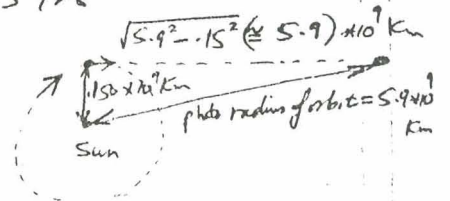 √5.9²-.15² (≅ 5.9) *10⁹ Km
.150 x 10⁹ Km
radius of orbit = 5.9x10⁹
Km
Sun